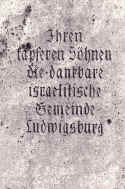 Ihren
tapferen Söhnen
die dankbare
israelitische
Gemeinde
Ludwigsburg